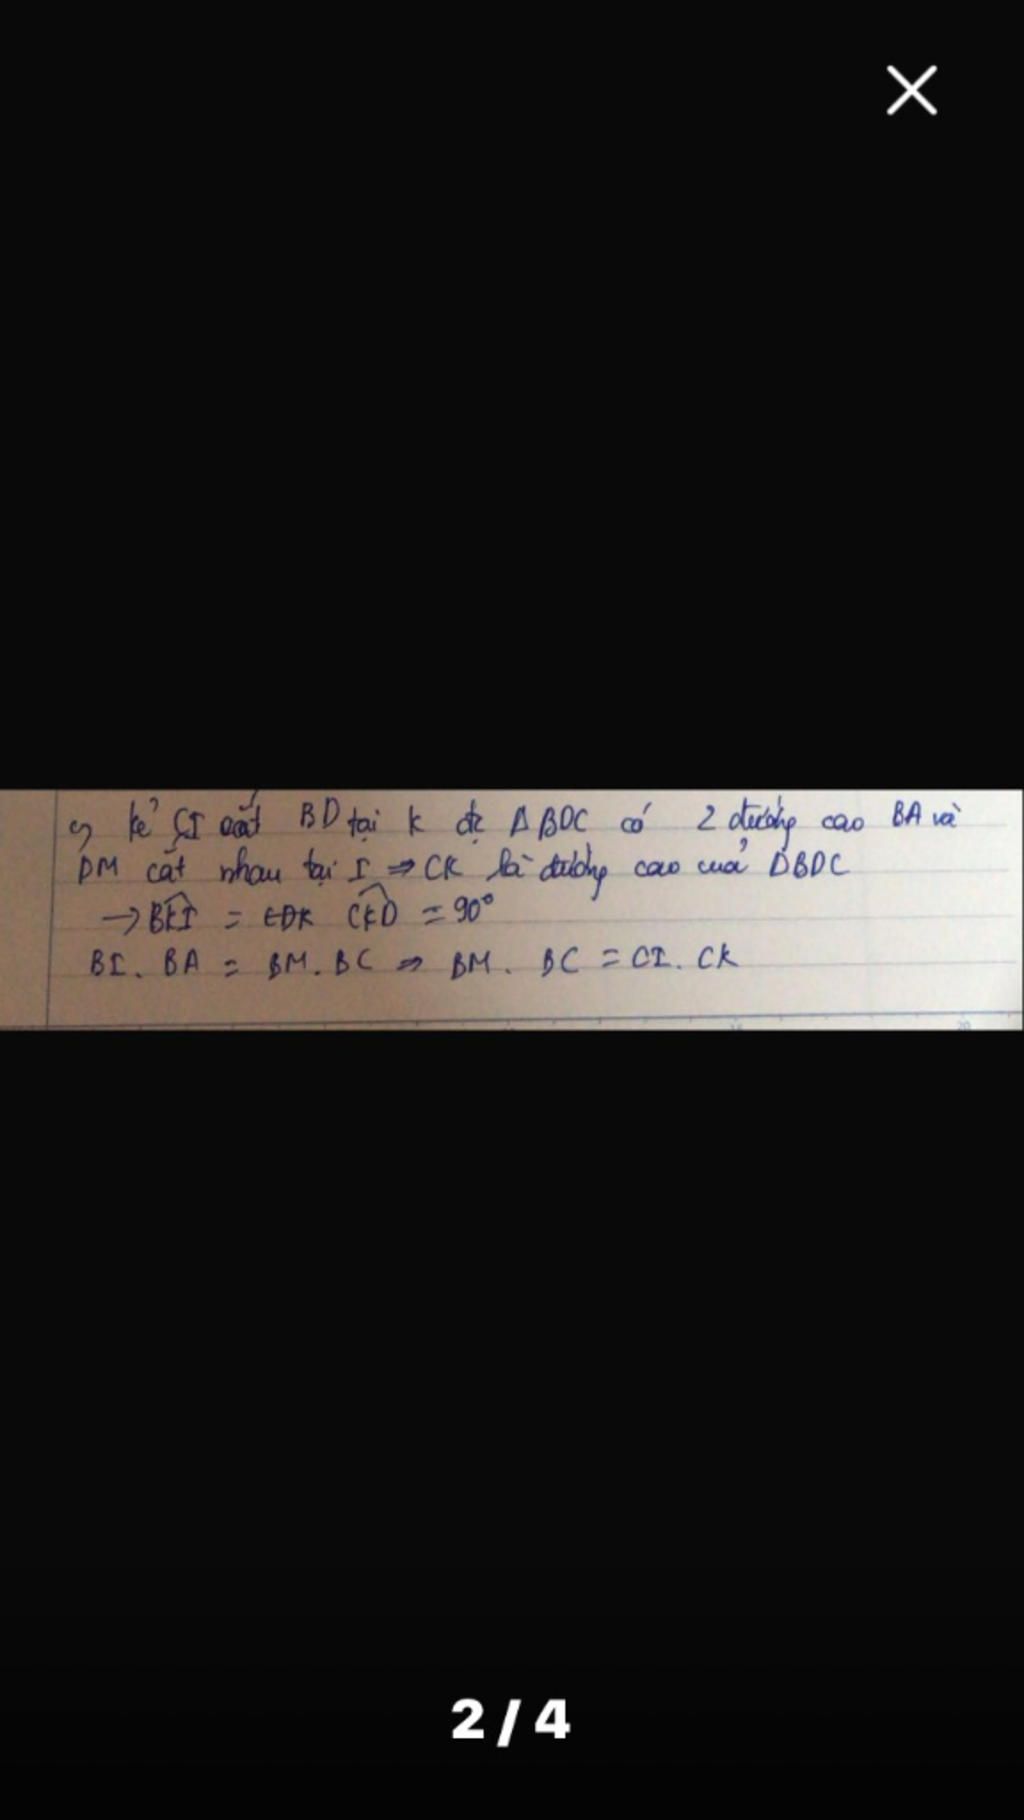 c, kẻ CI cắt BD tại K đc ΔBDC có 2 đường cao BA và
DM cắt nhau tại I ⇒ CK là đường cao của ΔBDC
→ BKI = CDK CKD = 90°
BI. BA = BM. BC ⇒ BM. BC = CI. CK
2 / 4